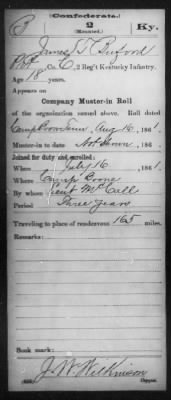 Confederate.
B 2 Ky.
(Mounted.)
James T Buford
Pvt, Co. C, 2 Reg't Kentucky Infantry.
Age 18 years.
Appears on
Company Muster-in Roll
of the organization named above. Roll dated
Camp Boone Tenn, Aug 16, 1861.
Muster-in to date Not shown, 186
Joined for duty and enrolled:
When July 16, 1861.
Where Camp Boone
By whom Lieut McCall
Period Three years
Traveling to place of rendezvous 165 miles.
Remarks:
Book mark:
J. W. Wilkinson
Copyist.